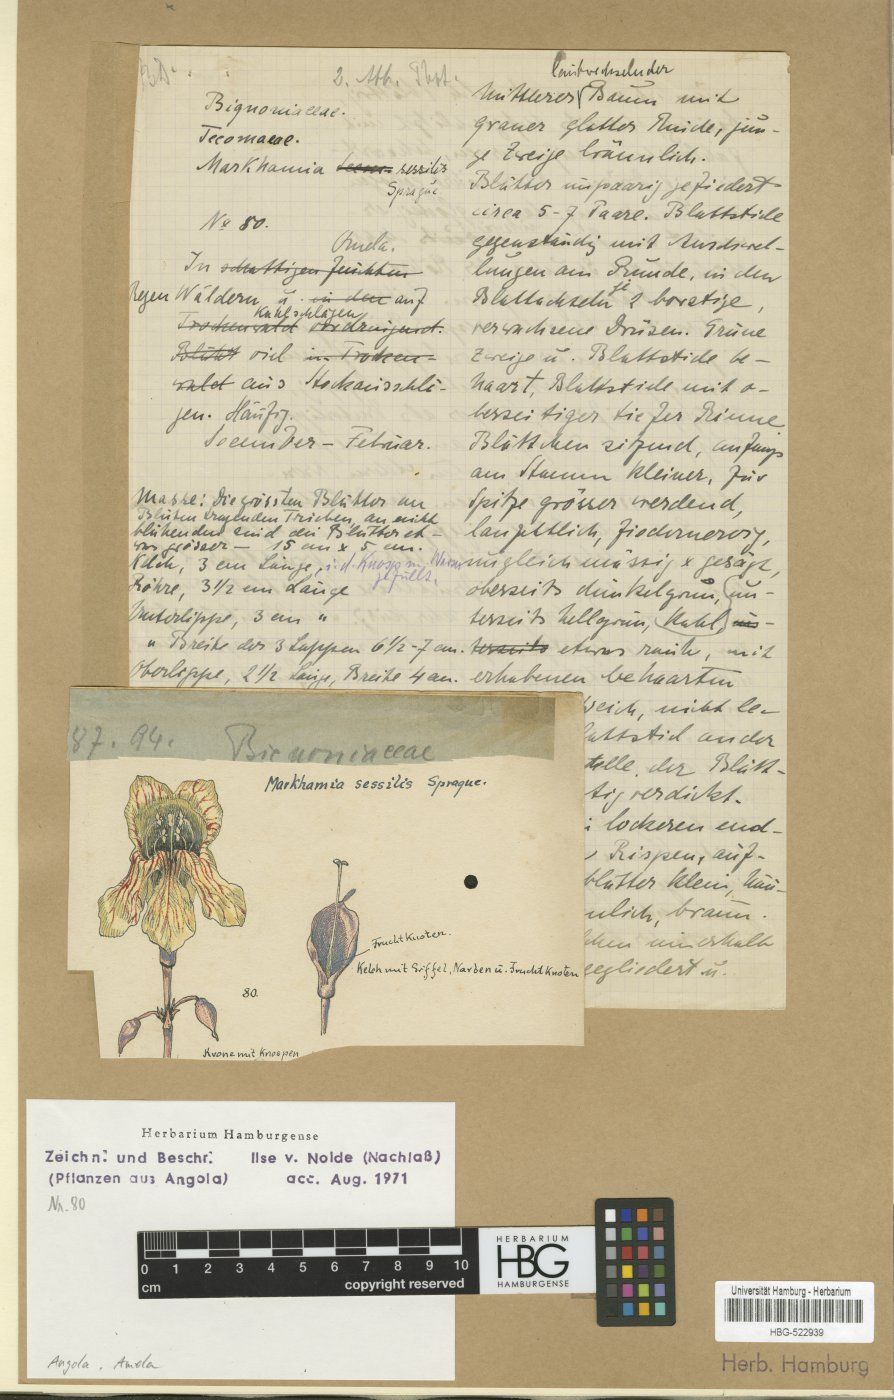 2. Abb. Tbot.
Bignoniaceae.
Tecomaeae.
Markhamia sessilis
Sprague
No 80.
Amela.
In schattigen feuchten
Regen Wäldern u. in den auf
Kahlschlägen
Trockenwald vordringend.
Blüht viel in Trocken-
wald aus Stockausschlä-
gen. Häufig.
Dezember – Februar.
Masse: Die grössten Blätter an
Blüten tragenden Trieben, an nicht
blühenden sind die Blätter et-
was grösser – 15 cm x 5 cm.
Kelch, 3 cm Länge, i. d. Knospe m. Wasser
gefüllt.
Röhre, 3 1/2 cm Länge
Unterlippe, 3 cm "
" Breite der 3 Lappen 6 1/2 - 7 cm.
Oberlippe, 2 1/2 Länge, Breite 4 cm.
laubwechselnder
Mittlerer Baum mit
grauer glatter Rinde, jün-
ge Zweige bräunlich.
Blätter unpaarig gefiedert
circa 5-7 Paare. Blattstiele
gegenständig mit Anschwel-
lungen am Grunde, in den
Blattachseln je 2 borstige,
verwachsene Drüsen. Grüne
Zweige u. Blattstiele be-
haart, Blattstiele mit o-
berseitiger tiefer Rinne
Blättchen sitzend, anfangs
am Stamm kleiner, zur
Spitze grösser werdend,
lanzettlich, fiedernervig,
ungleichmässig gesägt,
oberseits dunkelgrün, un-
terseits hellgrün, kahl, un-
terseits etwas rauh, mit
erhabenen behaarten
weich, nicht le-
attstiel an der
telle, der Blätt-
tig verdickt.
lockeren end-
Rispen, auf-
blätter klein, häu-
nlich, braun.
chen innerhalb
gegliedert u.
87. 94. Bignoniaceae
Markhamia sessilis Sprague.
Fruchtknoten.
Kelch mit Griffel, Narben u. Fruchtknoten
80.
Krone mit Knospen
Herbarium Hamburgense
Zeichn. und Beschr. Ilse v. Nolde (Nachlaß)
(Pflanzen aus Angola) acc. Aug. 1971
Nr. 80
0 1 2 3 4 5 6 7 8 9 10
cm copyright reserved
HERBARIUM
HBG
HAMBURGENSE
Universität Hamburg - Herbarium
HBG-522939
Herb. Hamburg
Angola. Amela